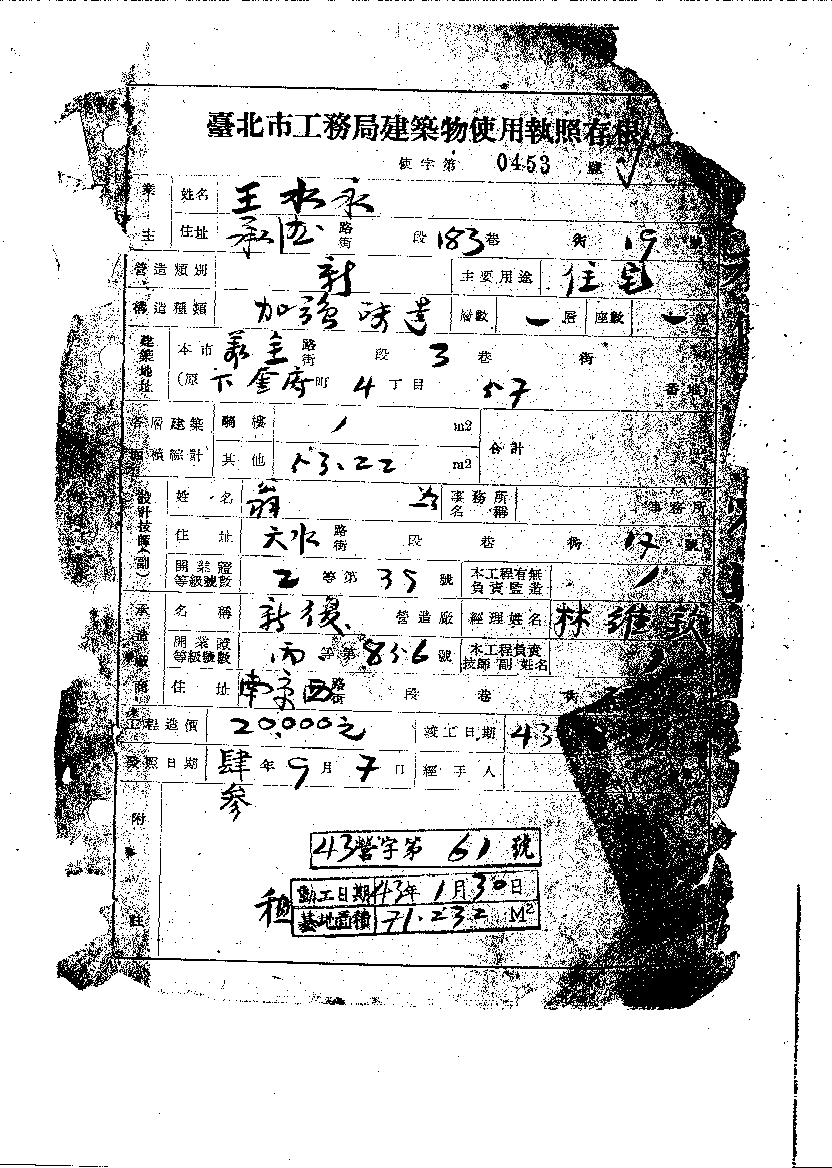 臺北市工務局建築物使用執照存根
使字第 0453 號
業主 姓名 王水永
住址 承德 路街 段 183 巷 街 19 號
營造類別 新 主要用途 住宅
構造種類 加強磚造 層數 一 層 座數 一
建築地址 本市 路街 段 3 巷 街
(原 下奎府 町 4 丁目 57 番地
各層建築面積綜計 騎樓 / m2 合計
其他 53.22 m2
設計技師(副) 姓名 翁 事務所名稱 事務所
住址 天水 路街 段 巷 街 17 號
開業證等級號數 乙 等第 35 號 本工程有無負責監造 /
承造廠商 名稱 新復 營造廠 經理姓名 林維欽
開業證等級號數 丙 等第 856 號 本工程負責技師(副)姓名 /
住址 南京西 路街 段 巷 街
工程造價 20,000元 竣工日期 43
發照日期 肆參 年 9 月 7 日 經手人
附註
43營字第 61 號
動工日期 43年 1月 30日
租 基地面積 71.232 M²